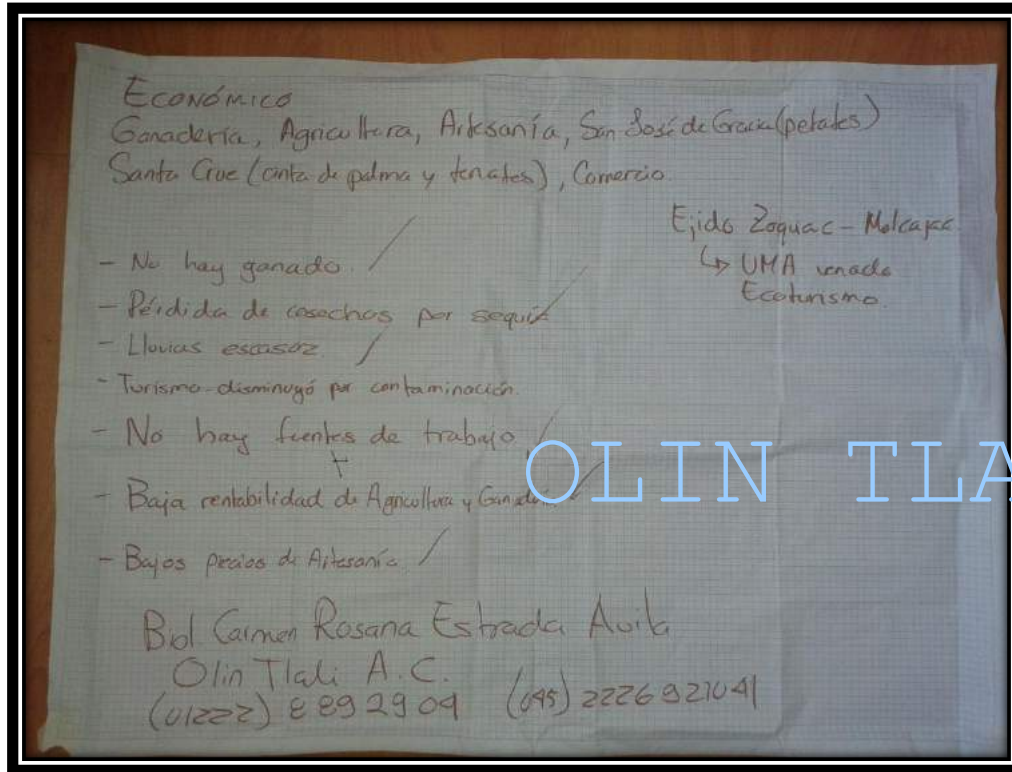 Económico
Ganadería, Agricultura, Artesanía, San José de Gracia (petates)
Santa Cruz (cinta de palma y tenates), Comercio.
Ejido Zoquac - Molcajac
↳ UMA venado
Ecoturismo.
- No hay ganado. /
- Pérdida de cosechas por sequía
- Lluvias escasaz. /
- Turismo disminuyó por contaminación.
- No hay fuentes de trabajo /
+
- Baja rentabilidad de Agricultura y Ganadería /
- Bajos precios de Artesanía /
Biol. Carmen Rosana Estrada Avila
Olin Tlali A.C.
(01222) 8892909 (045) 2226921041
OLIN TLA